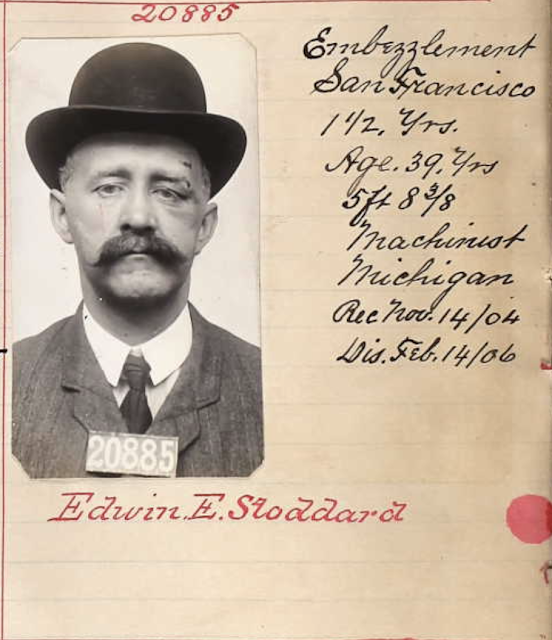 20885
Embezzlement
San Francisco
1 1/2, Yrs.
Age. 39, Yrs
5ft 8 3/8
Machinist
Michigan
Rec Nov. 14/04
Dis. Feb. 14/06
20885
Edwin. E. Stoddard